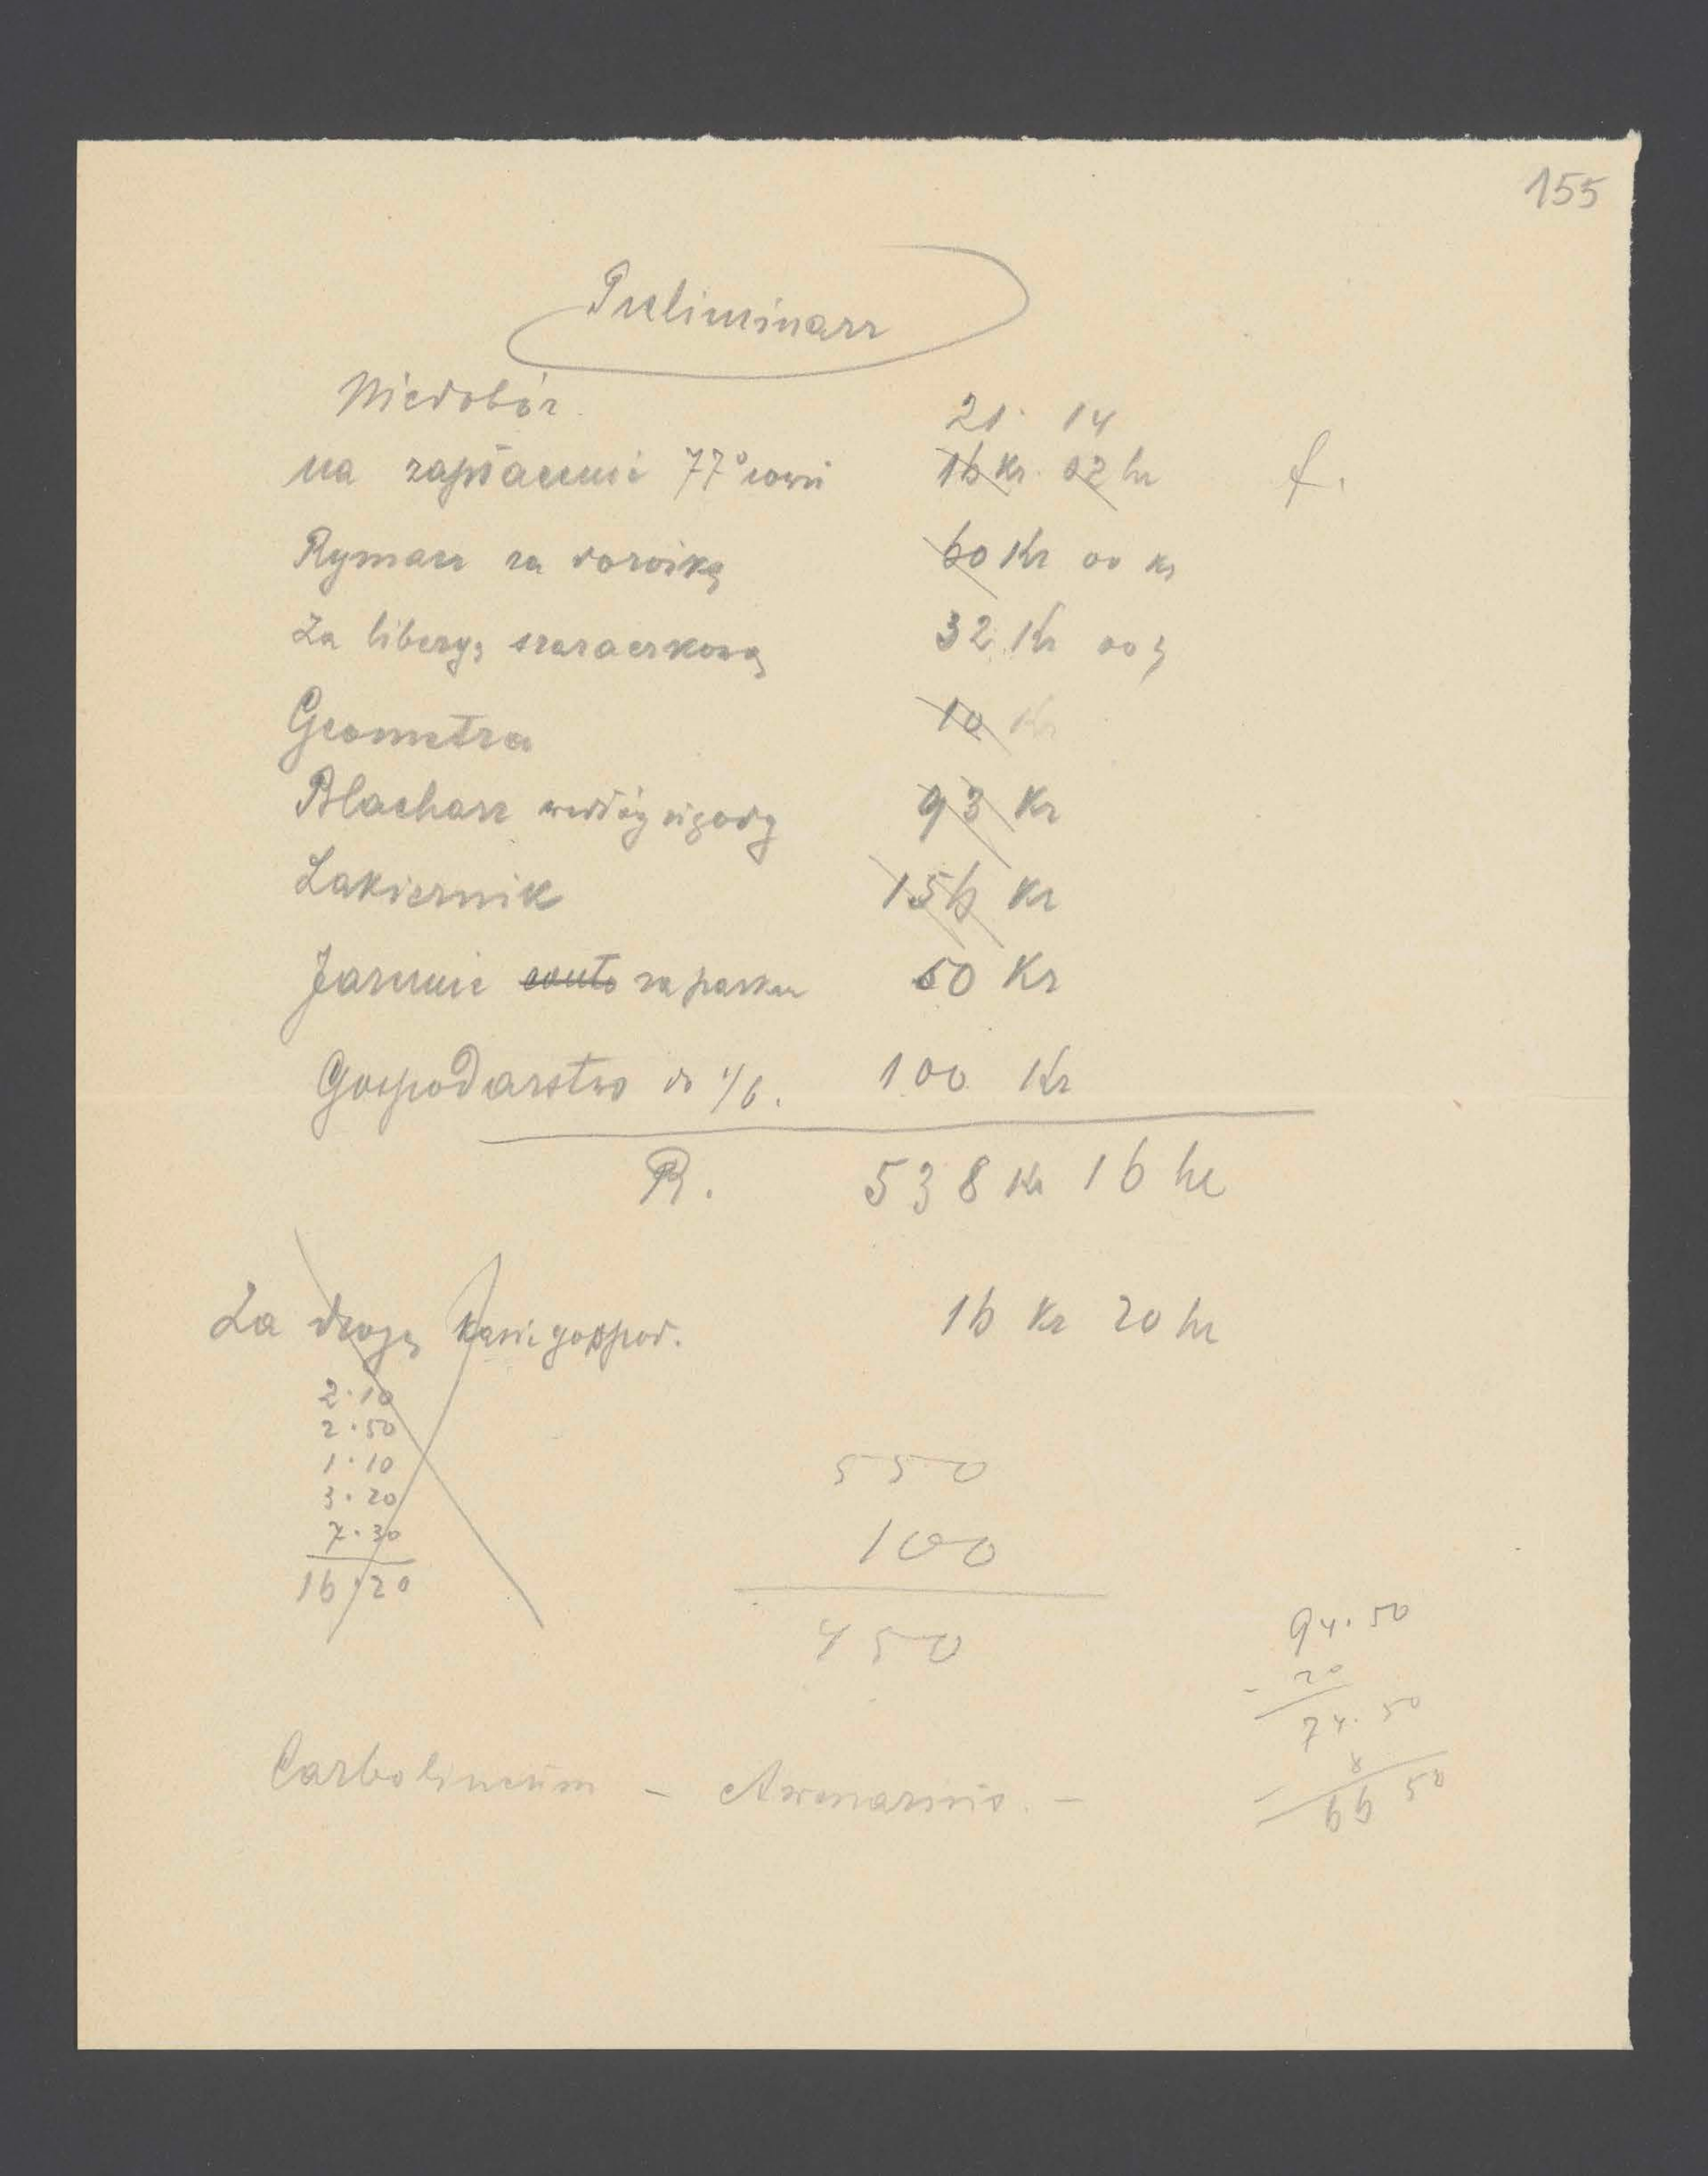 155
Preliminarz
Niedobór 21. 14
na zapłacenie 77° 16 Kr. 02 hr f.
Rymarz za dorożkę 60 Kr 00
Za liberyę szaraczkową 32 Kr 00
Geometra 10 Kr
Blacharz według ugody 93 Kr
Lakiernik 156 Kr
conto za 50 Kr
Gospodarstwo do 1/6. 100 Kr
R. 538 Kr 16 hr
Za drogę kasie gospod. 16 Kr 20 hr
2.10
2.50
1.10
3.20
7.30
16.20
550
100
450
94.50
- 20
74.50
8
66 50
Carbolineum - Awenarius. -